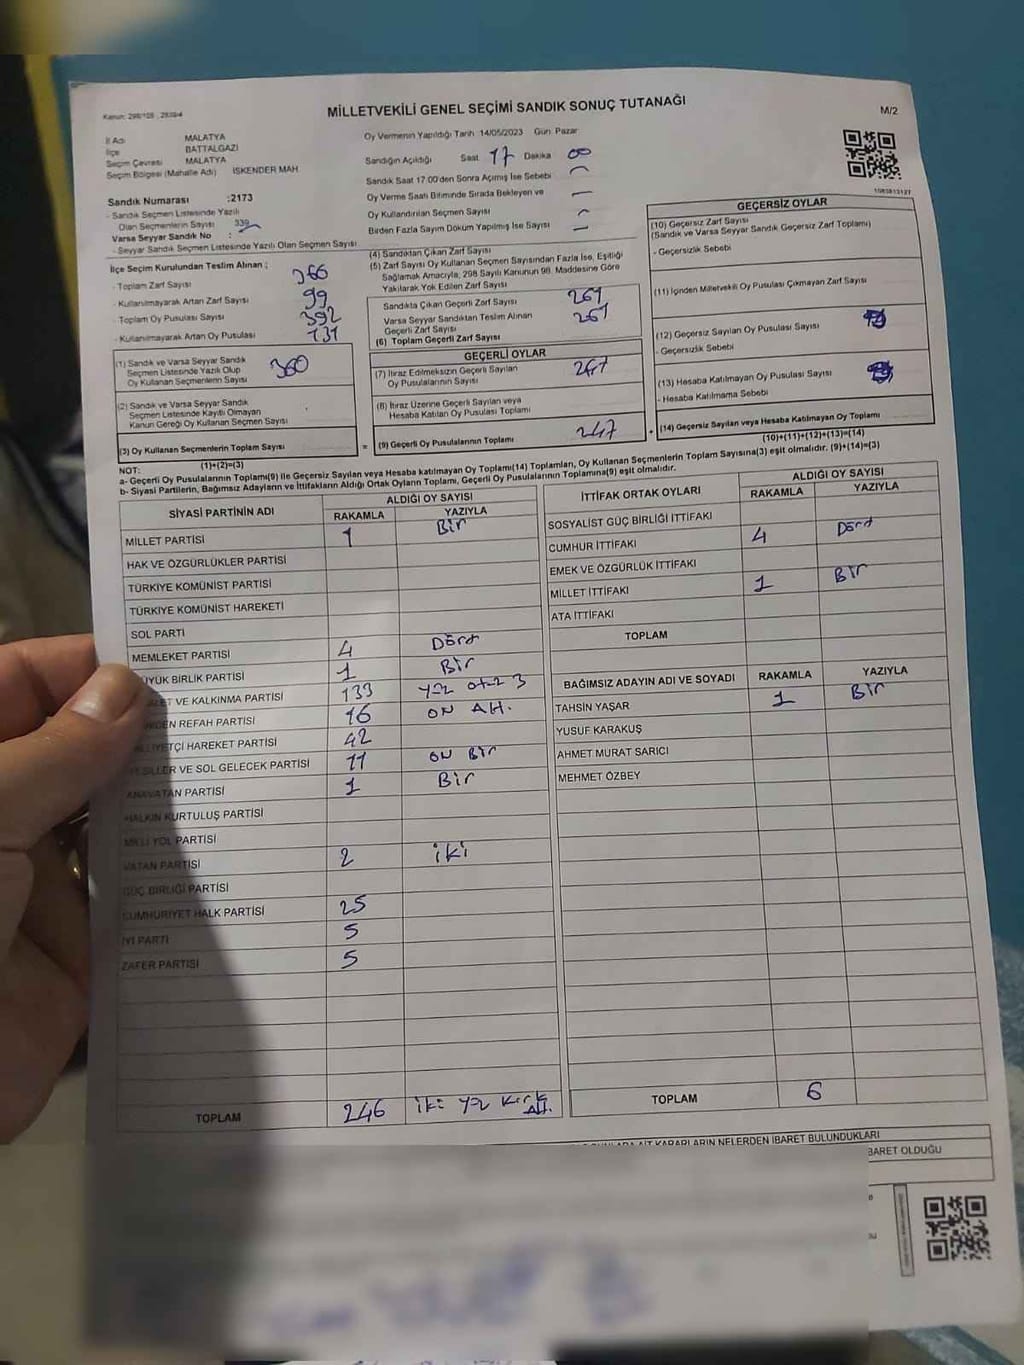 Kanun: 298/105 , 2839/4
MİLLETVEKİLİ GENEL SEÇİMİ SANDIK SONUÇ TUTANAĞI
M/2
İl Adı MALATYA
İlçe BATTALGAZİ
Seçim Çevresi MALATYA
Seçim Bölgesi (Mahalle Adı) İSKENDER MAH
Sandık Numarası :2173
- Sandık Seçmen Listesinde Yazılı
Olan Seçmenlerin Sayısı 339
Varsa Seyyar Sandık No :
- Seyyar Sandık Seçmen Listesinde Yazılı Olan Seçmen Sayısı
Oy Vermenin Yapıldığı Tarih 14/05/2023 Gün Pazar
Sandığın Açıldığı Saat 17 Dakika 00
Sandık Saat 17.00'den Sonra Açılmış İse Sebebi
Oy Verme Saati Bitiminde Sırada Bekleyen ve
Oy Kullandırılan Seçmen Sayısı
Birden Fazla Sayım Döküm Yapılmış İse Sayısı
1083813127
İlçe Seçim Kurulundan Teslim Alınan ;
- Toplam Zarf Sayısı 366
- Kullanılmayarak Artan Zarf Sayısı 99
- Toplam Oy Pusulası Sayısı 392
- Kullanılmayarak Artan Oy Pusulası 131
(1) Sandık ve Varsa Seyyar Sandık
Seçmen Listesinde Yazılı Olup
Oy Kullanan Seçmenlerin Sayısı 360
(2) Sandık ve Varsa Seyyar Sandık
Seçmen Listesinde Kayıtlı Olmayan
Kanun Gereği Oy Kullanan Seçmen Sayısı
(3) Oy Kullanan Seçmenlerin Toplam Sayısı
(1)+(2)=(3)
(4) Sandıktan Çıkan Zarf Sayısı
(5) Zarf Sayısı Oy Kullanan Seçmen Sayısından Fazla İse, Eşitliği
Sağlamak Amacıyla, 298 Sayılı Kanunun 98. Maddesine Göre
Yakılarak Yok Edilen Zarf Sayısı
Sandıkta Çıkan Geçerli Zarf Sayısı 261
Varsa Seyyar Sandıktan Teslim Alınan
Geçerli Zarf Sayısı 261
(6) Toplam Geçerli Zarf Sayısı
GEÇERLİ OYLAR
(7) İtiraz Edilmeksizin Geçerli Sayılan
Oy Pusulalarının Sayısı 247
(8) İtiraz Üzerine Geçerli Sayılan veya
Hesaba Katılan Oy Pusulası Toplamı
= (9) Geçerli Oy Pusulalarının Toplamı 247 +
GEÇERSİZ OYLAR
(10) Geçersiz Zarf Sayısı
(Sandık ve Varsa Seyyar Sandık Geçersiz Zarf Toplamı)
- Geçersizlik Sebebi
(11) İçinden Milletvekili Oy Pusulası Çıkmayan Zarf Sayısı
(12) Geçersiz Sayılan Oy Pusulası Sayısı
- Geçersizlik Sebebi
(13) Hesaba Katılmayan Oy Pusulası Sayısı
- Hesaba Katılmama Sebebi
(14) Geçersiz Sayılan veya Hesaba Katılmayan Oy Toplamı
(10)+(11)+(12)+(13)=(14)
NOT:
a- Geçerli Oy Pusulalarının Toplamı(9) ile Geçersiz Sayılan veya Hesaba katılmayan Oy Toplamı(14) Toplamları, Oy Kullanan Seçmenlerin Toplam Sayısına(3) eşit olmalıdır. (9)+(14)=(3)
b- Siyasi Partilerin, Bağımsız Adayların ve İttifakların Aldığı Ortak Oyların Toplamı, Geçerli Oy Pusulalarının Toplamına(9) eşit olmalıdır.
SİYASİ PARTİNİN ADI ALDIĞI OY SAYISI
RAKAMLA YAZIYLA
MİLLET PARTİSİ 1 Bir
HAK VE ÖZGÜRLÜKLER PARTİSİ
TÜRKİYE KOMÜNİST PARTİSİ
TÜRKİYE KOMÜNİST HAREKETİ
SOL PARTİ
MEMLEKET PARTİSİ 4 Dört
YÜK BİRLİK PARTİSİ 1 Bir
LET VE KALKINMA PARTİSİ 133 yüz otuz 3
DEN REFAH PARTİSİ 16 ON Alt.
LLİYETÇİ HAREKET PARTİSİ 42
YEŞİLLER VE SOL GELECEK PARTİSİ 11 ON Bir
ANAVATAN PARTİSİ 1 Bir
HALKIN KURTULUŞ PARTİSİ
MİLLİ YOL PARTİSİ
VATAN PARTİSİ 2 iki
GÜÇ BİRLİĞİ PARTİSİ
CUMHURİYET HALK PARTİSİ 25
İYİ PARTİ 5
ZAFER PARTİSİ 5
TOPLAM 246 iki yüz kırk Alt.
İTTİFAK ORTAK OYLARI ALDIĞI OY SAYISI
RAKAMLA YAZIYLA
SOSYALİST GÜÇ BİRLİĞİ İTTİFAKI
CUMHUR İTTİFAKI 4 Dört
EMEK VE ÖZGÜRLÜK İTTİFAKI
MİLLET İTTİFAKI 1 Bir
ATA İTTİFAKI
TOPLAM
BAĞIMSIZ ADAYIN ADI VE SOYADI RAKAMLA YAZIYLA
TAHSİN YAŞAR 1 Bir
YUSUF KARAKUŞ
AHMET MURAT SARICI
MEHMET ÖZBEY
TOPLAM 6
AİT KARARLARIN NELERDEN İBARET BULUNDUKLARI
BARET OLDUĞU